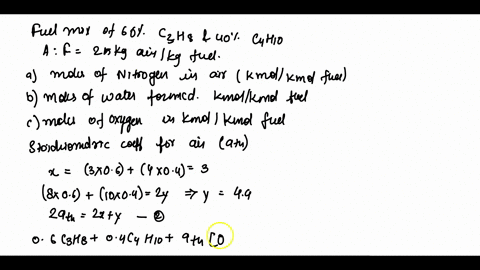 Fuel mix of 60% C3H8 & 40% C4H10
A:F = 25 kg air/kg fuel.
a) moles of Nitrogen in air (kmol/kmol fuel)
b) moles of water formed. kmol/kmol fuel
c) moles of oxygen in kmol/kmol fuel
Stoichiometric coeff for air (ath)
x = (3×0.6) + (4×0.4) = 3
(8×0.6) + (10×0.4) = 2y ⇒ y = 4.4
2ath = 2x+y — ②
0.6 C3H8 + 0.4 C4H10 + ath CO